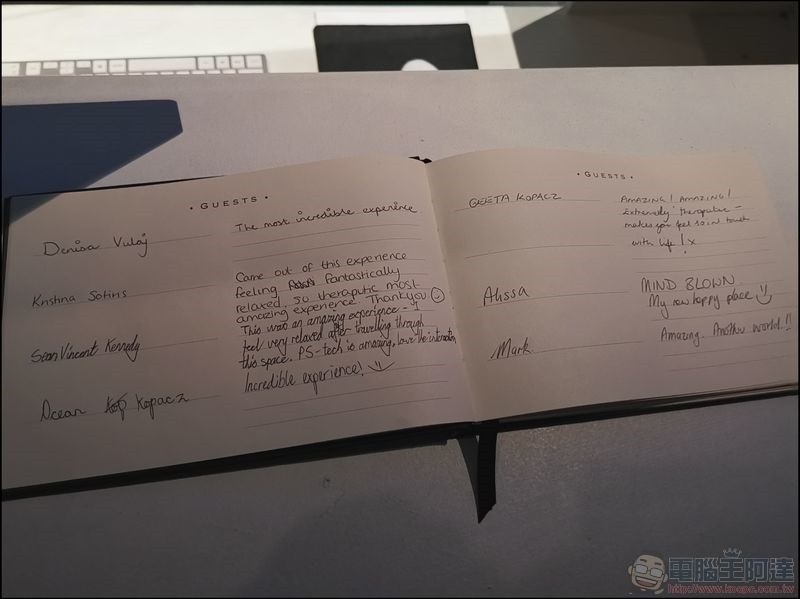 • GUESTS •
Denisa Vulaj
The most incredible experience
Krishna Sotiris
Came out of this experience
feeling fantastically
relaxed, so theraputic most
amazing experience. Thankyou
Sean Vincent Kennedy
This was an amazing experience - I
feel very relaxed after travelling through
this space. PS-tech is amazing, love the interaction,
Ocean Kopacz
Incredible experience!
• GUESTS •
GEETA KOPACZ
AMAZING! AMAZING!
Extremely theraputive -
makes you feel so in touch
with life! x
Alissa
MIND BLOWN
My new happy place
Mark
Amazing. Another world!!
電腦王阿達
http://www.kocpc.com.tw